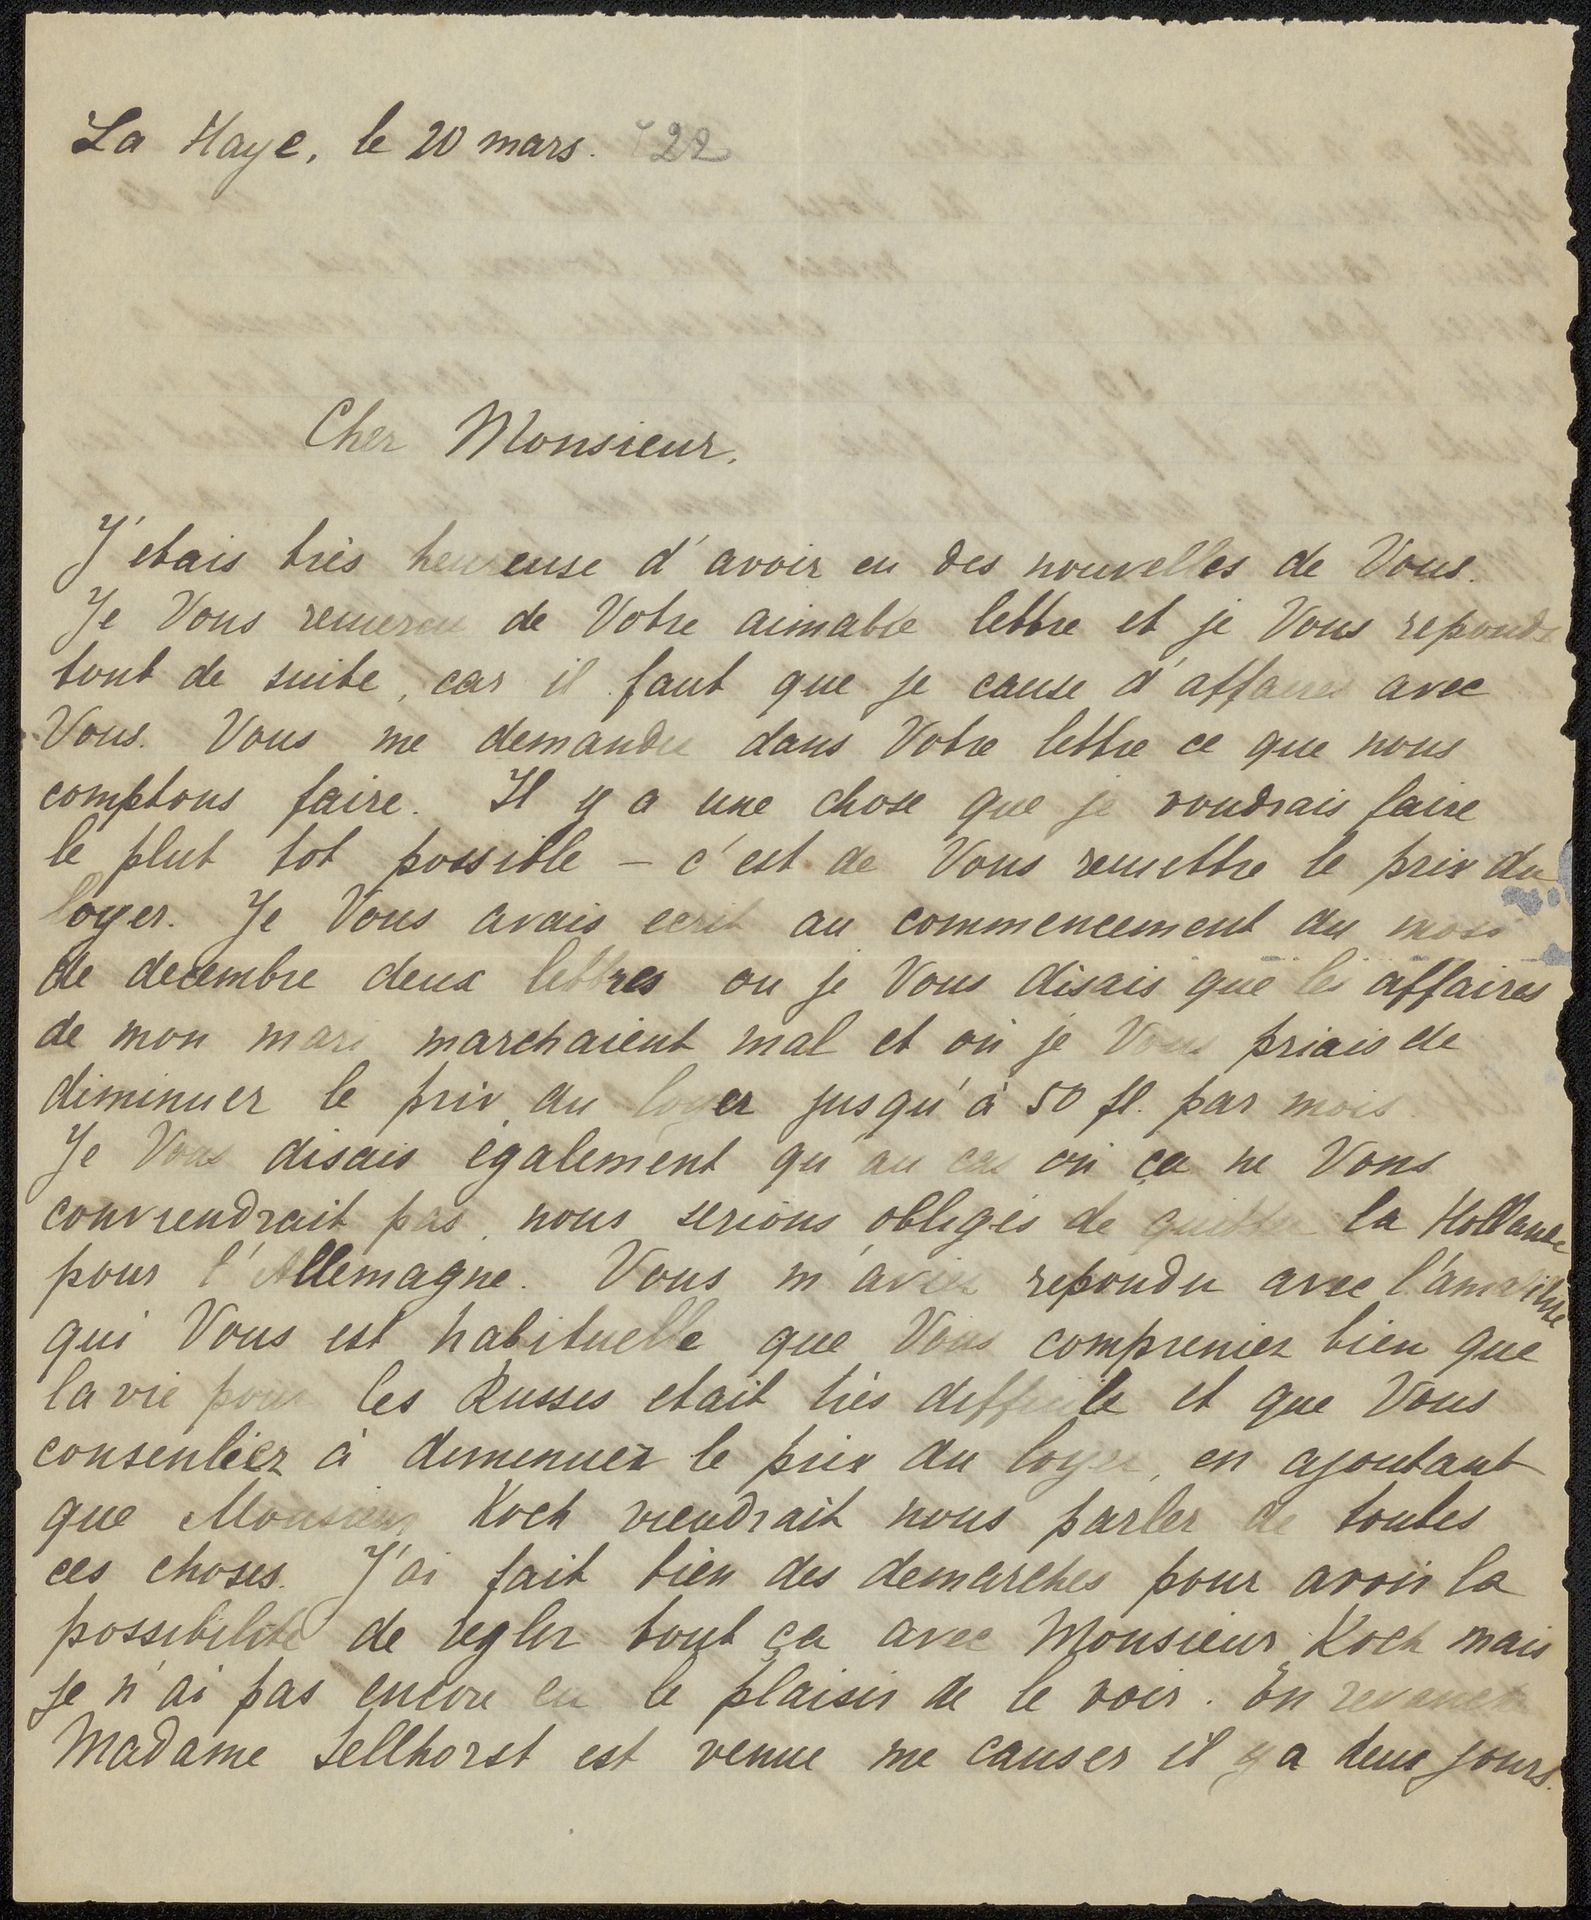 La Haye, le 20 mars. '22
Cher Monsieur,
J'etais très heureuse d'avoir eu des nouvelles de Vous.
Je Vous remercie de Votre aimable lettre et je Vous reponds
tout de suite, car il faut que je cause d'affaires avec
Vous. Vous me demandez dans Votre lettre ce que nous
comptons faire. Il y a une chose que je voudrais faire
le plut tot possible – c'est de Vous remettre le prix du
loyer. Je Vous avais ecrit au commencement du mois
de decembre deux lettres ou je Vous disais que les affaires
de mon mari marchaient mal et où je Vous priais de
diminuer le prix du loyer jusqu'à 50 fl. par mois.
Je Vous disais également qu'au cas où ça ne Vous
conviendrait pas, nous serions obligés de quitter la Hollande
pour l'Allemagne. Vous m'aviez repondu avec l'amabilité
qui Vous est habituelle que Vous compreniez bien que
la vie pour les Russes etait très difficile et que Vous
consentiez à diminuer le prix du loyer, en ajoutant
que Monsieur Koch viendrait nous parler de toutes
ces choses. J'ai fait bien des demarches pour avoir la
possibilité de regler tout ça avec Monsieur Koch mais
je n'ai pas encore eu le plaisir de le voir. En revanche
Madame Sellhorst est venue me causer il y a deux jours.